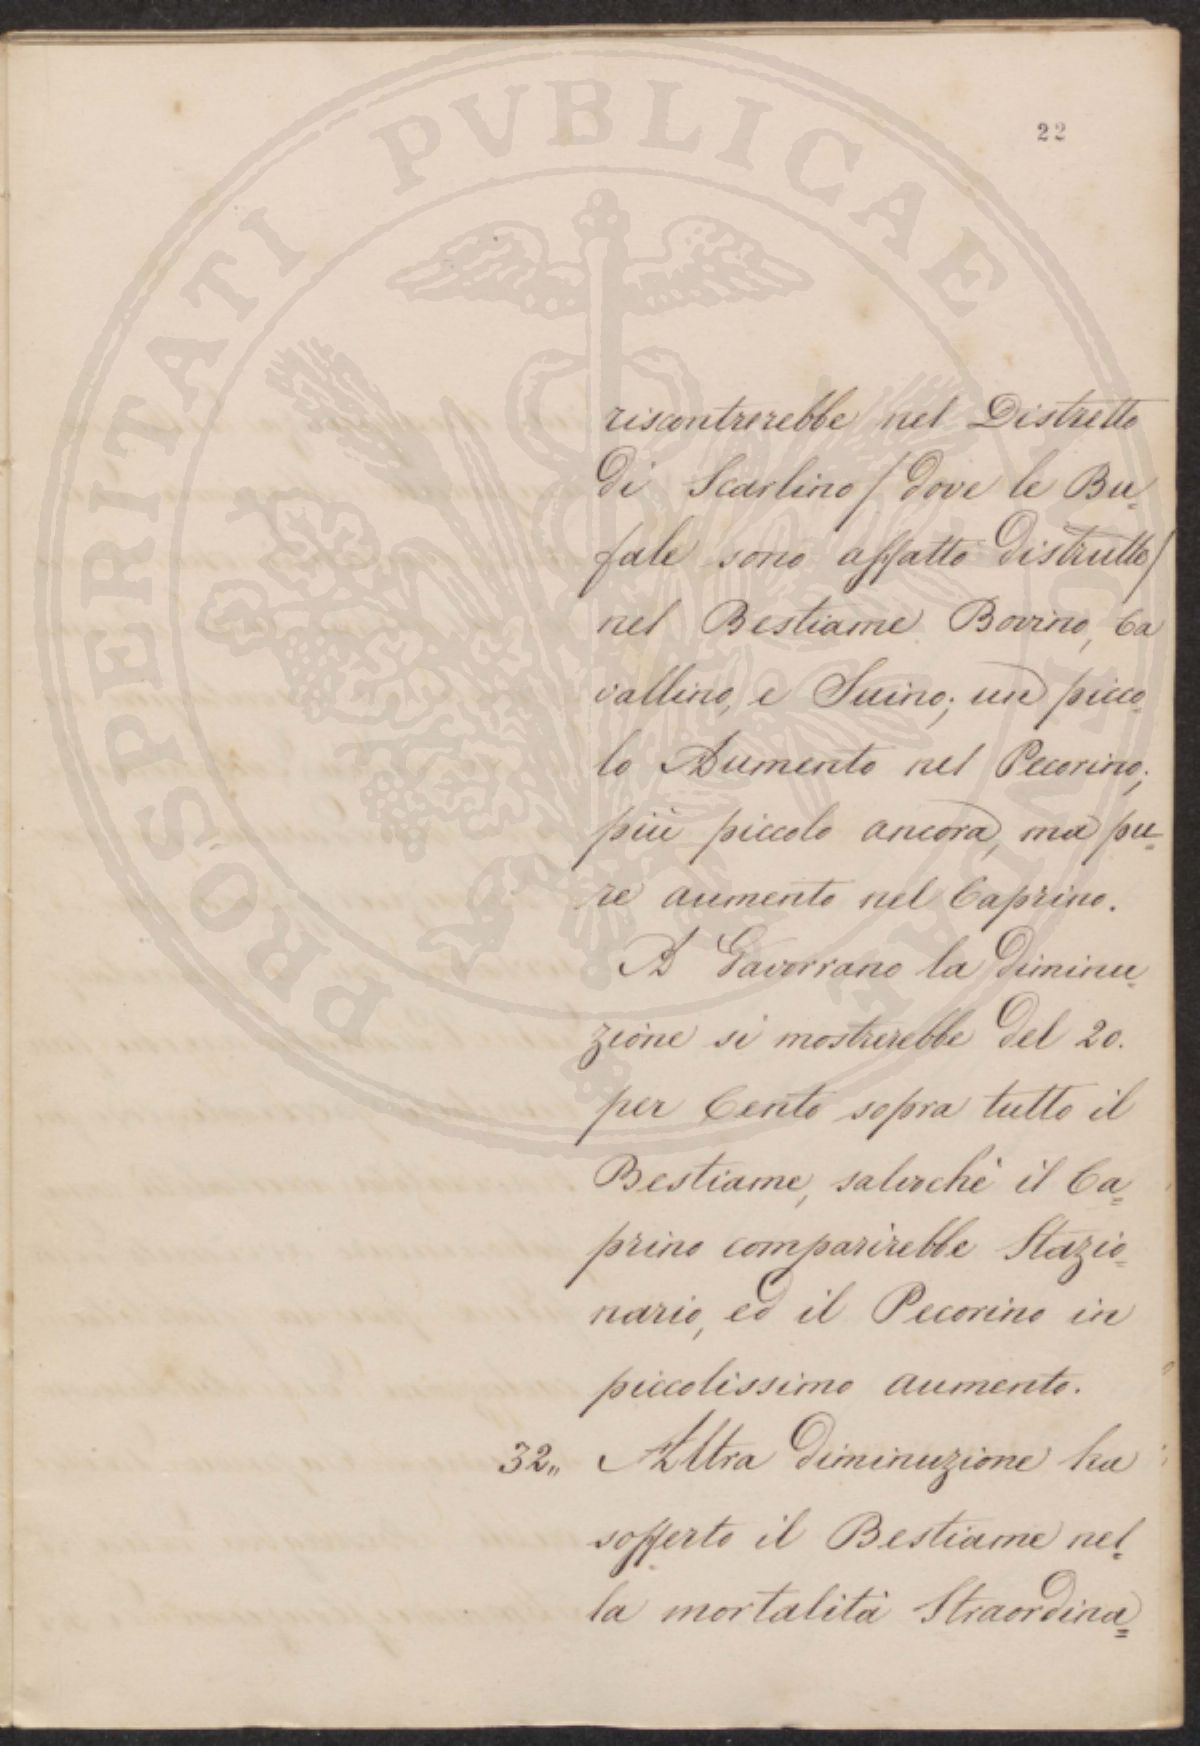 22
riscontrerebbe nel Distretto
di Scarlino / dove le Bu=
fale sono affatto distrutte /
nel Bestiame Bovino, Ca
vallino, e Suino; un picco=
lo Aumento nel Pecorino;
più piccolo ancora, ma pu=
re aumento nel Caprino.
A Gavorrano la diminu=
zione si mostrerebbe del 20.
per Cento sopra tutto il
Bestiame, salvochè il Ca=
prino comparirebbe Stazio=
nario, ed il Pecorino in
piccolissimo aumento.
32„ Altra diminuzione ha
sofferto il Bestiame nel=
la mortalità Straordina=
PROSPERITATI PVBLICAE AVGENDAE